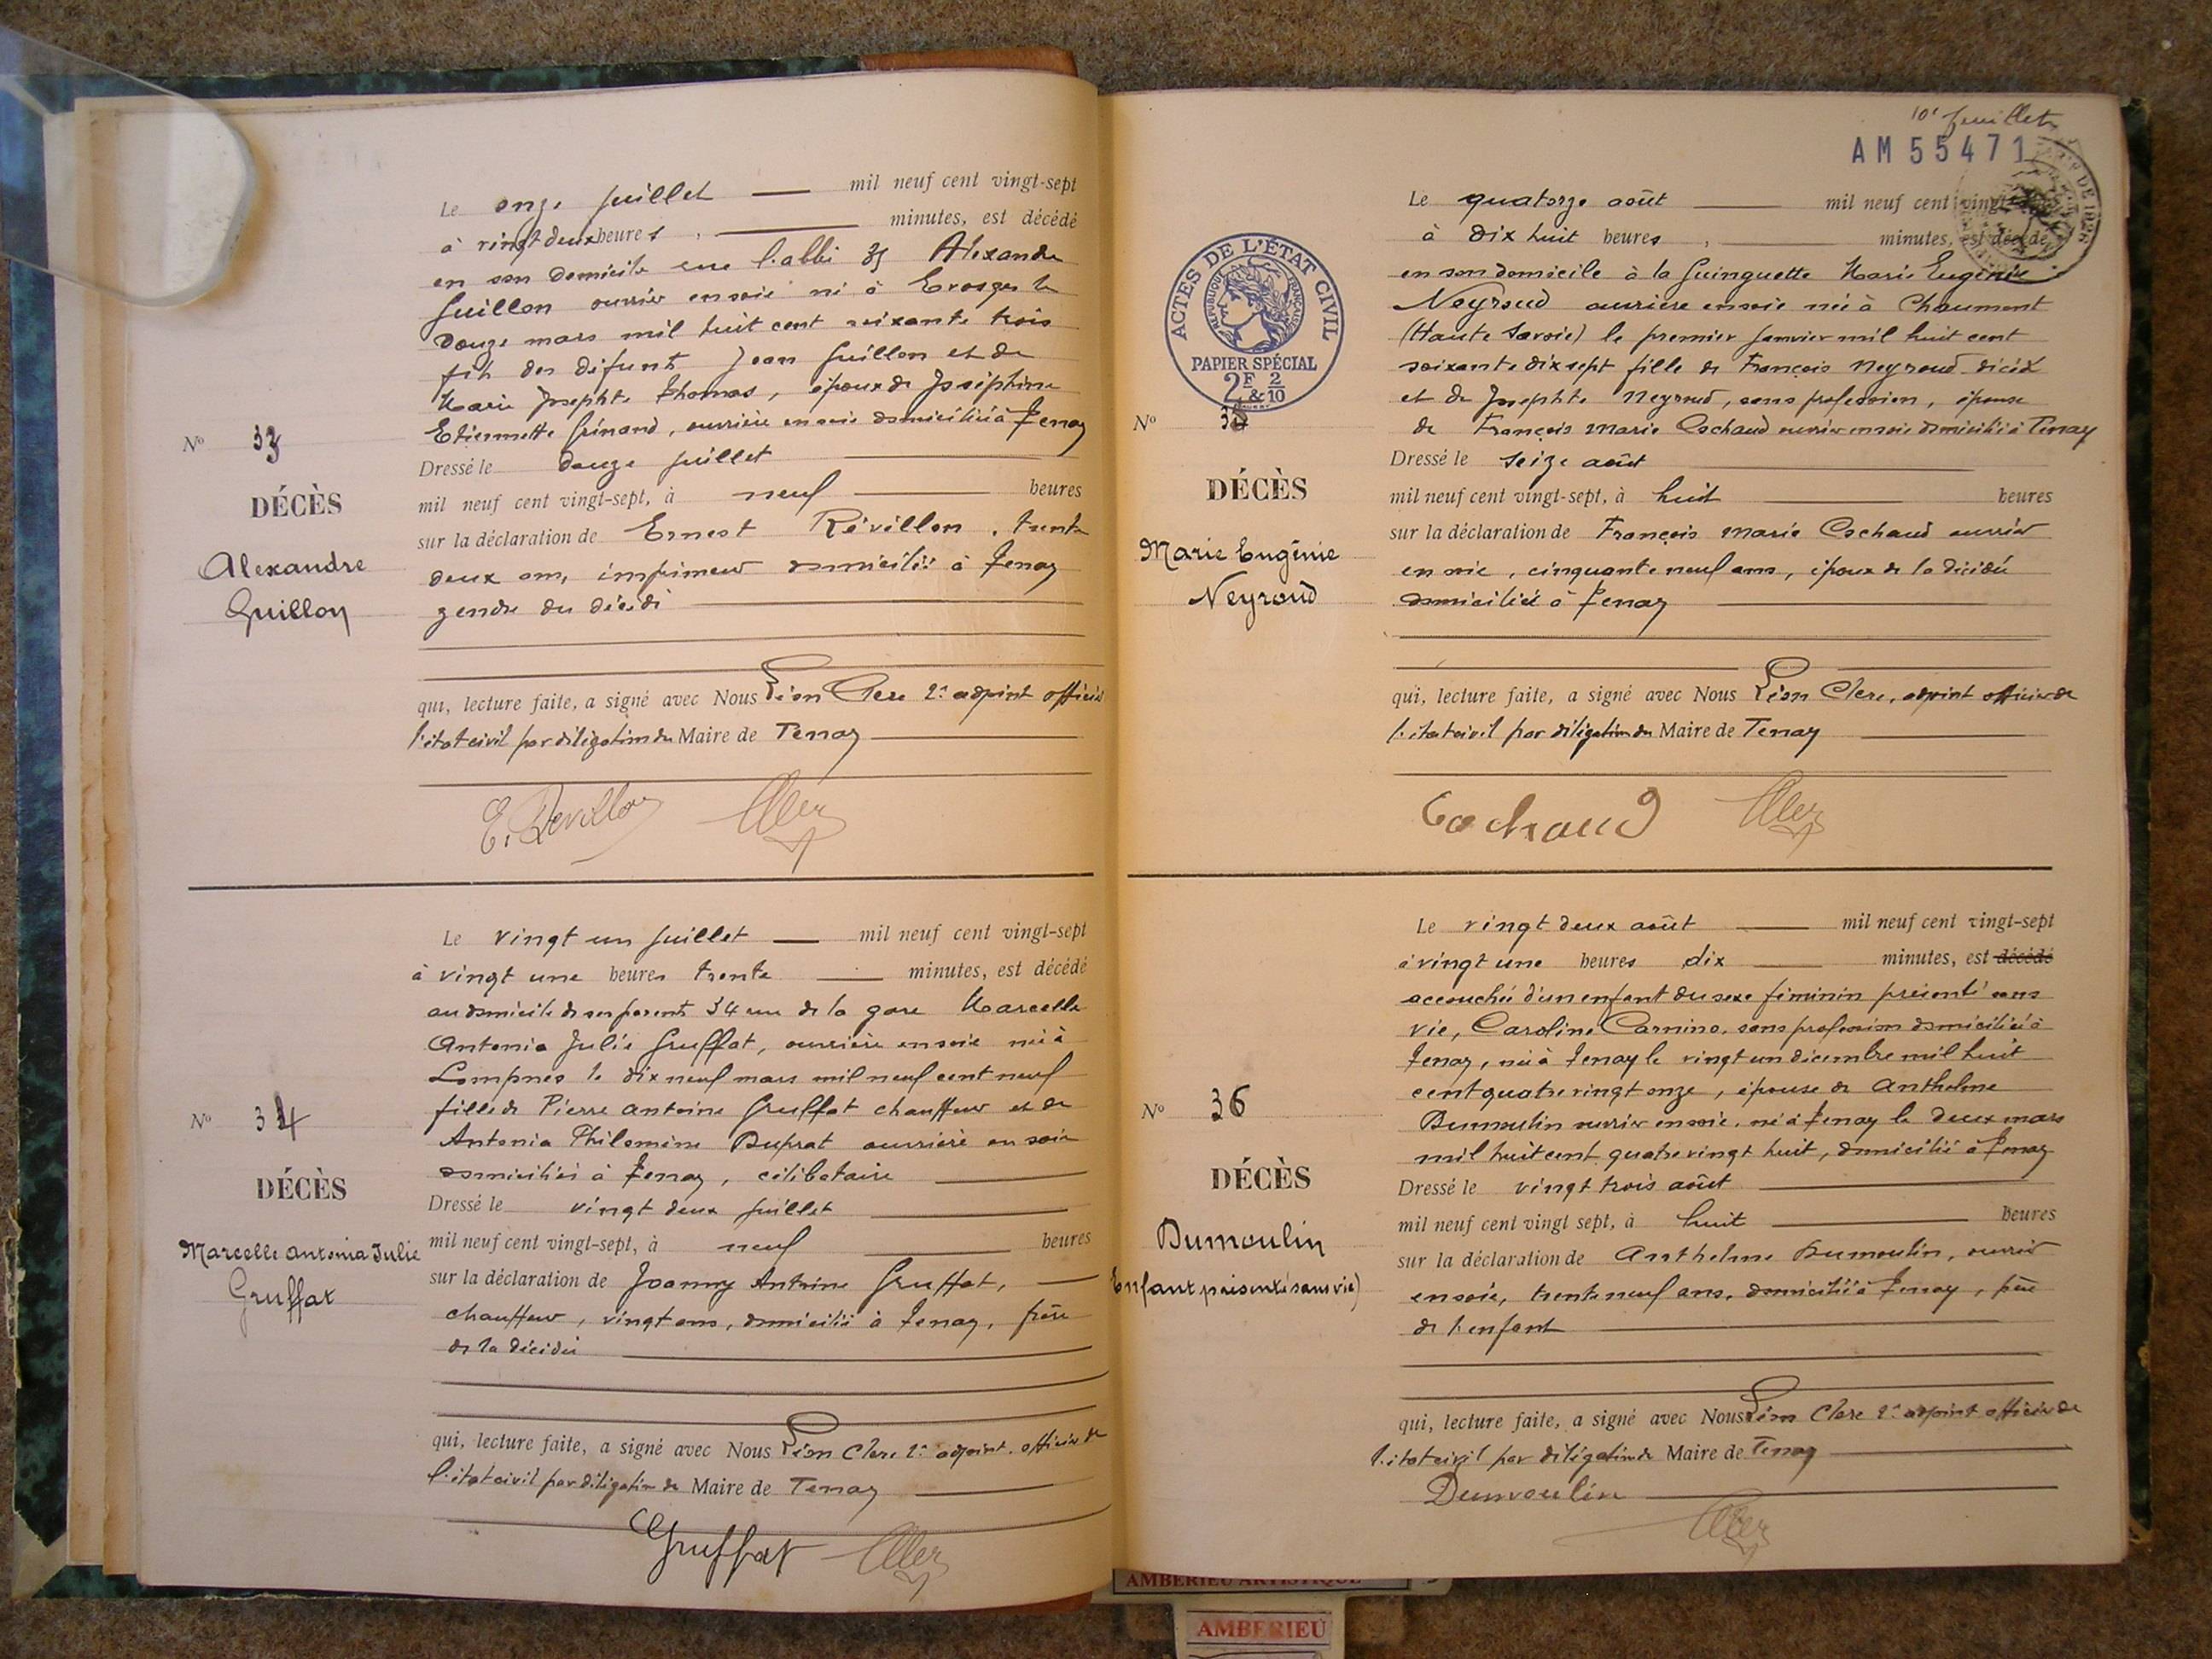 Le onze juillet — mil neuf cent vingt-sept
à vingt deux heures, — minutes, est décédé
en son domicile rue l'abbé Alexandre
Guillon ouvrier en soie né à Evosges le
douze mars mil huit cent soixante trois
fils des défunts Jean Guillon et de
Marie Josephte Thomas, époux de Joséphine
Etiennette Grinand, ouvrière en soie domiciliée à Tenay
Nº 33
Dressé le douze juillet
DÉCÈS
mil neuf cent vingt-sept, à neuf heures
sur la déclaration de Ernest Révillon, trente
Alexandre
Guillon
deux ans, imprimeur domicilié à Tenay
gendre du décédé
qui, lecture faite, a signé avec Nous Léon Clerc 2e adjoint officier
l'état civil par délégation du Maire de Tenay
E. Revillon Clerc
Le vingt un juillet — mil neuf cent vingt-sept
à vingt une heures trente — minutes, est décédé
au domicile de ses parents 34 rue de la gare Marcelle
Antonia Julie Gruffat, ouvrière en soie née à
Lompnes le dix neuf mars mil neuf cent neuf
fille de Pierre Antoine Gruffat chauffeur et de
Antonia Philomène Duprat ouvrière en soie
domiciliés à Tenay, célibataire
Nº 34
DÉCÈS
Marcelle Antonia Julie
Gruffat
Dressé le vingt deux juillet
mil neuf cent vingt-sept, à neuf heures
sur la déclaration de Joanny Antoine Gruffat,
chauffeur, vingt ans, domicilié à Tenay, frère
de la décédée
qui, lecture faite, a signé avec Nous Léon Clerc 2e adjoint officier de
l'état civil par délégation du Maire de Tenay
Gruffat Clerc
10e feuillet
AM 55471
Le quatorze août — mil neuf cent vingt
à dix huit heures, minutes, est décédé
en son domicile à la Guinguette Marie Eugénie
Neyroud ouvrière en soie née à Chaumont
(Haute Savoie) le premier janvier mil huit cent
soixante dix sept fille de François Neyroud décédé
et de Josephte Neyroud, sans profession, épouse
de François Marie Cochaud ouvrier en soie domicilié à Tenay
ACTES DE L'ÉTAT CIVIL
RÉPUBLIQUE FRANÇAISE
PAPIER SPÉCIAL
2F & 2/10
Nº 35
DÉCÈS
Marie Eugénie
Neyroud
Dressé le seize août
mil neuf cent vingt-sept, à huit heures
sur la déclaration de François Marie Cochaud ouvrier
en soie, cinquante neuf ans, époux de la décédée
domicilié à Tenay
qui, lecture faite, a signé avec Nous Léon Clerc, adjoint officier de
l'état civil par délégation du Maire de Tenay
Cochaud Clerc
Le vingt deux août — mil neuf cent vingt-sept
à vingt une heures dix — minutes, est décédé
accouchée d'un enfant du sexe féminin présenté sans
vie, Caroline Carnino, sans profession domiciliée à
Tenay, née à Tenay le vingt un décembre mil huit
cent quatre vingt onze, épouse de Anthelme
Dumoulin ouvrier en soie, né à Tenay le deux mars
mil huit cent quatre vingt huit, domicilié à Tenay
Nº 36
DÉCÈS
Dumoulin
Enfant présenté sans vie)
Dressé le vingt trois août
mil neuf cent vingt sept, à huit heures
sur la déclaration de Anthelme Dumoulin, ouvrier
en soie, trente neuf ans, domicilié à Tenay, père
de l'enfant
qui, lecture faite, a signé avec Nous Léon Clerc 2e adjoint officier de
l'état civil par délégation du Maire de Tenay
Dumoulin
Clerc
AMBERIEU ARTISTIQUE
AMBERIEU